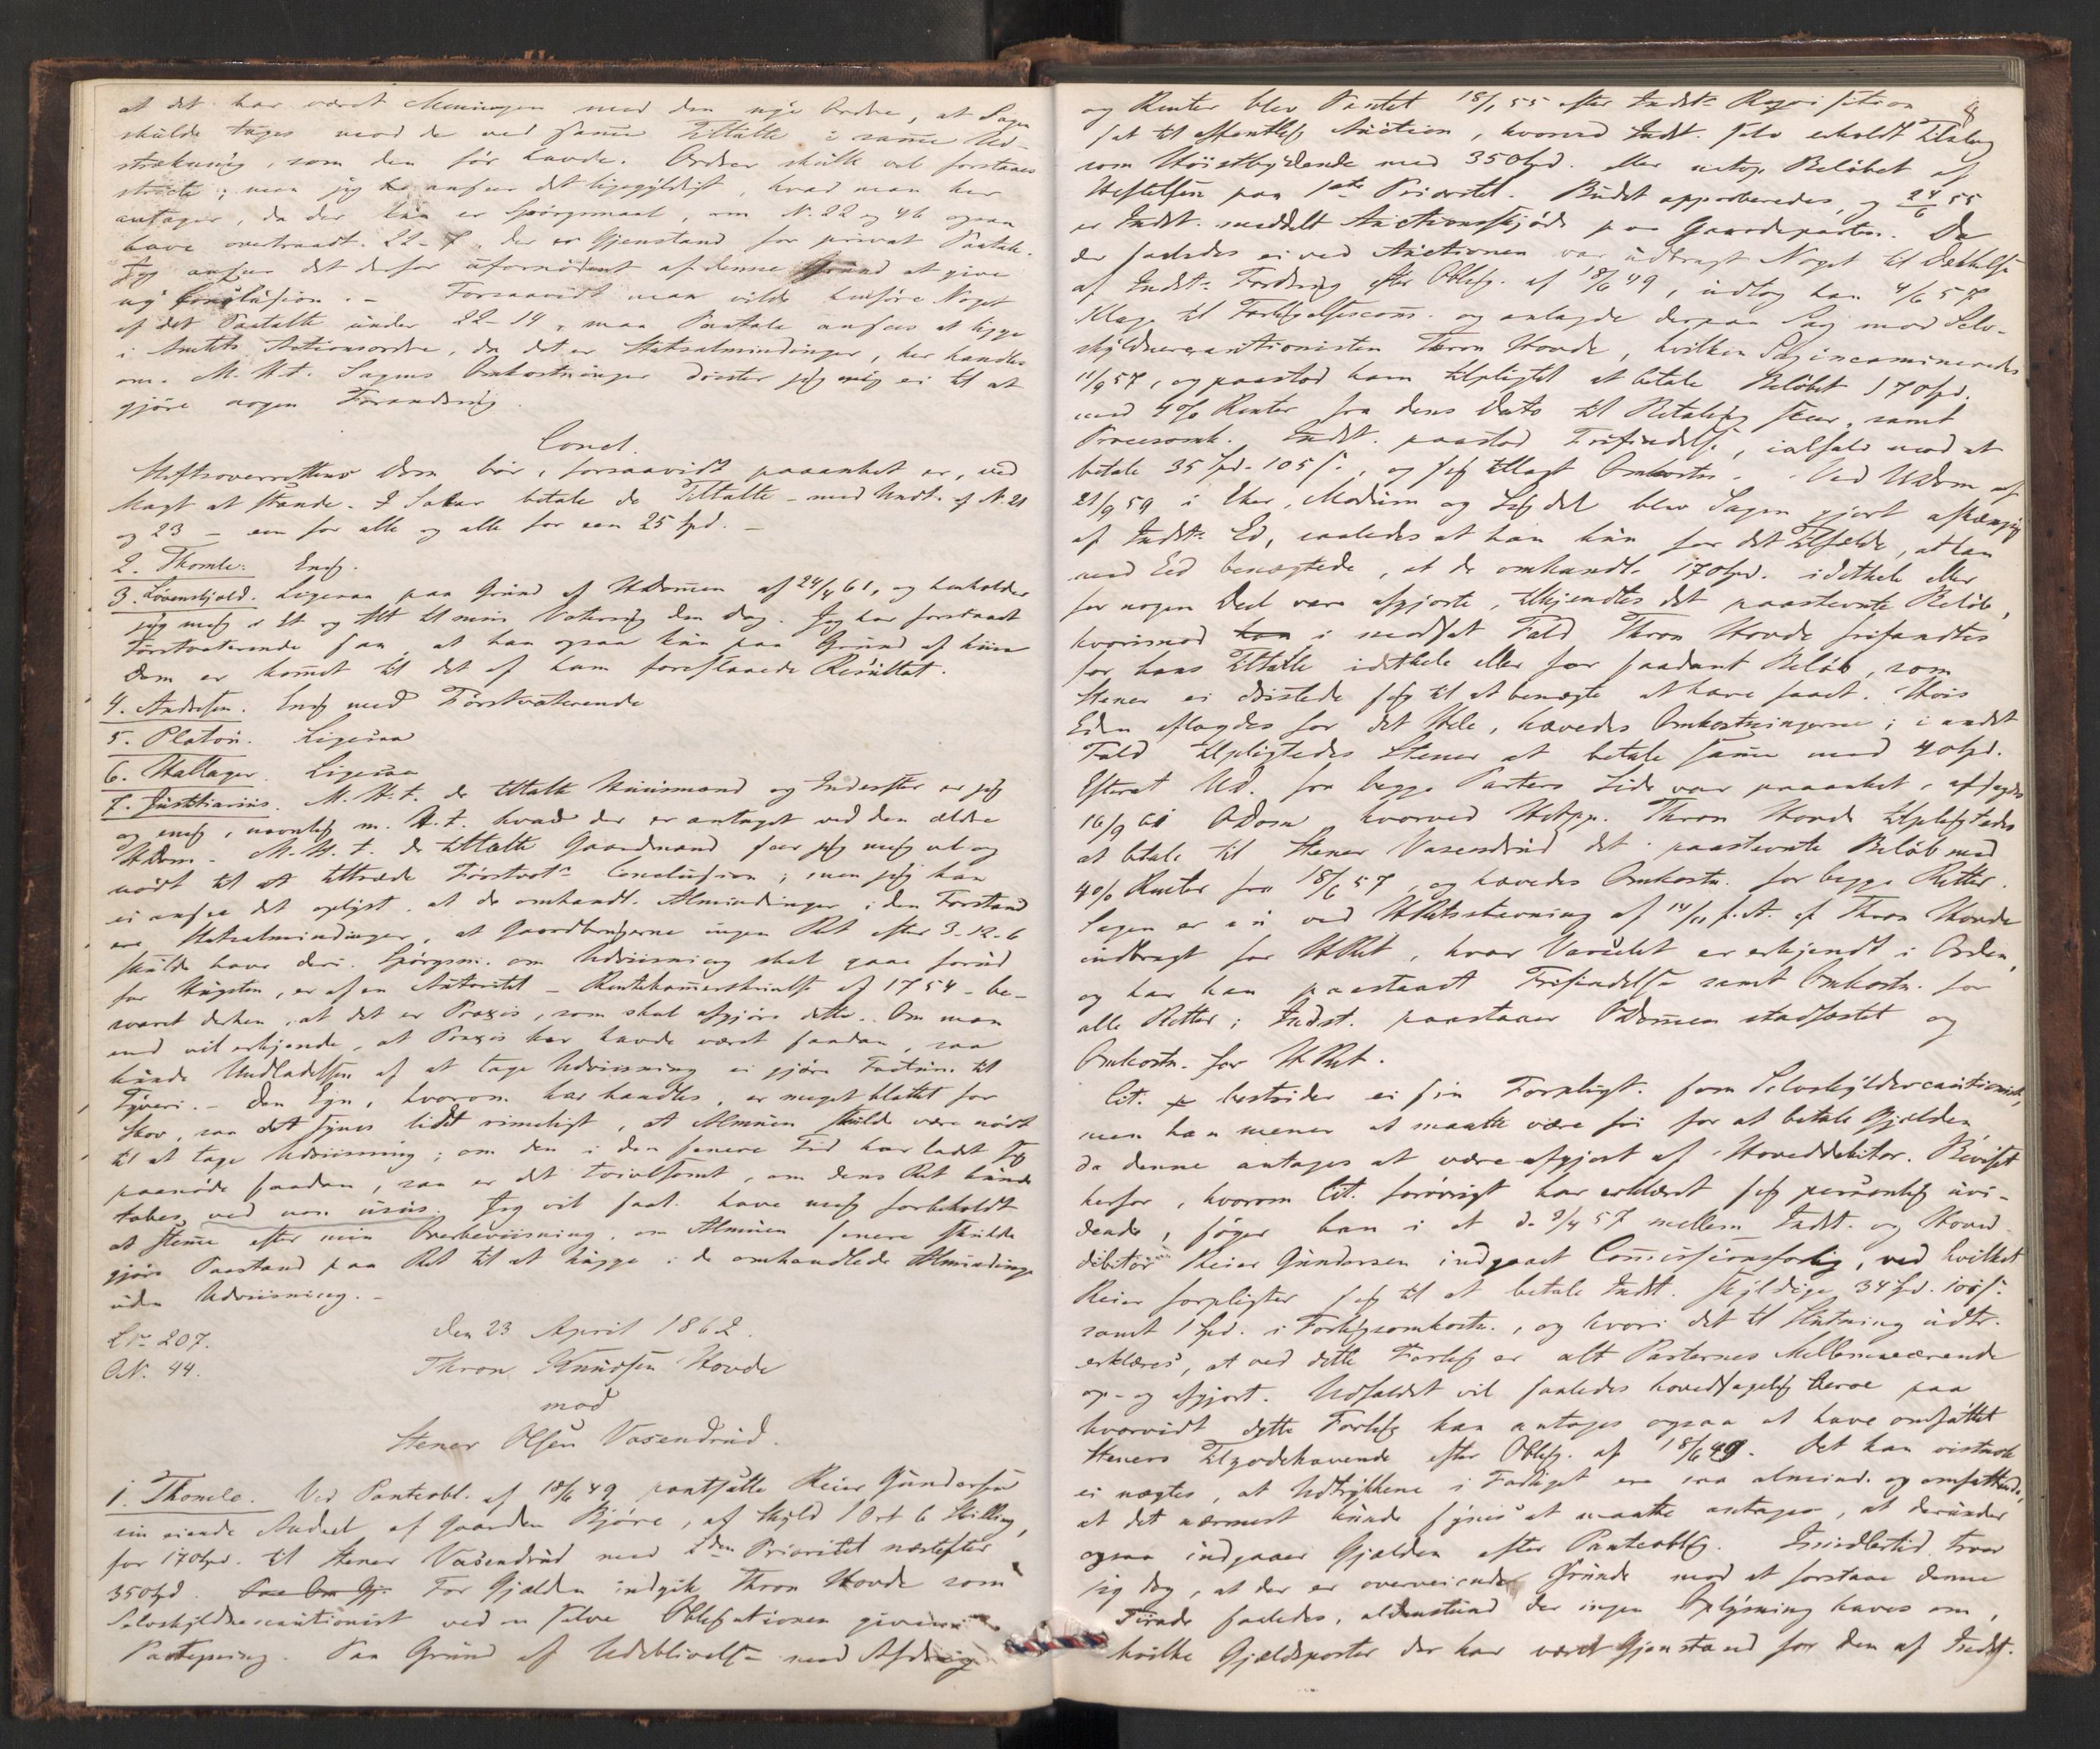 at det har været Meningen med den nye Ordre, at Sagen
skulde tages mod de ved samme Tiltalte i samme Ud-
strækning, som den før havde. Ordren skulle vel forstaaes
stricte; men jeg anseer det ligegyldigt, hvad man her
antager, da der kun er Spørgsmaal, om N. 22 og 46 ogsaa
have overtraadt 22-7, der er Gjenstand for privat Paatale.
Jeg anseer det derfor ufornødent af denne Grund at give
ny Conclusion. - Forsaavidt man vilde henføre Noget
af det Paatalte under 22-14, maa Paatale ansees at ligge
i Amtets Actionsordre, da det er Statsalmindinger, her handles
om. M. H. t. Sagens Omkostninger drister jeg mig ei til at
gjøre nogen Forandring.
Concl.
Stiftsoverrettens Dom bør, forsaavidt paaanket er, ved
Magt at stande. I Salær betale de Tiltalte - med Undt. af N. 21
og 23 - een for alle og alle for een 25 Spd. -
2. Thomle: Enig.
3. Løvenskjold. Ligesaa paa Grund af HDommen af 24/4 61, og henholder
jeg mig i Et og Alt til min Votering den Dag. Jeg har forstaaet
Førstvoterende saa, at han ogsaa kun paa Grund af hiin
Dom er kommet til det af ham foreslaaede Resultat.
4. Andresen. Enig med Førstvoterende
5. Platou. Ligesaa
6. Hallager. Ligesaa
7. Justitiarius. M. H. t. de tiltalte Huusmænd og Inderster er jeg
og enig, navnlig m. H. t. hvad der er antaget ved den ældre
HDom. M. H. t. de tiltalte Gaardmænd seer jeg mig vel og
nødt til at tiltræde Førstvots Conclusion; men jeg kan
ei ansee det oplyst, at de omhandl. Almindinger i den Forstand
ere Statsalmindinger, at Gaardbrugerne ingen Ret efter 3-12-6
skulde have deri. Spørgsm. om Udviisning skal gaae forud
for Hugsten, er af en Autoritet - Rentekammerskrivelse af 1754 - be-
svaret derhen, at det er Praxis, som skal afgjøre dette. Om man
end vil erkjende, at Praxis her havde været saadan, saa
kunde Undladelsen af at tage Udviisning ei gjøre Factum til
Tyveri. - Den Egn, hvorom her handles, er meget blottet for
Skov, saa det synes lidet rimeligt, at Almuen skulde være nødt
til at tage Udviisning; om den i den senere Tid har ladet sig
paanøde saadan, saa er det tvivlsomt, om dens Ret kunde
tabes ved non usus. Jeg vil saal. have mig forbeholdt
at stemme efter min Overbeviisning, om Almuen senere skulde
gjøre Paastand paa Ret til at hugge i de omhandlede Almindinger
uden Udviisning. -
Lr. 207.
den 23 April 1862.
AN. 44.
Thron Knudsen Hovde
mod
Stener Olsen Vasendrud.
1. Thomle. Ved Panteobl. af 18/6 49 pantsatte Reier Gundersen
sin eiende Andeel af Gaarden Bjøre, af Skyld 1 Ort 6 Skilling,
for 170 Spd. til Stener Vasendrud med 2den Prioritet næstefter
350 Spd. For Gjælden indgik Thron Hovde som
Selvskyldnercautionist ved en selve Obligationen given
Paategning. Paa Grund af Udeblivelse med Afdrag
8
og Renter blev Pantet 18/1 55 efter Indsts Reqvisition
sat til offentlig Auction, hvorved Indst. selv erholdt Tilslag
som Høistbydende med 350 Spd. eller netop Beløbet af
Heftelsen paa 1ste Prioritet. Budet approberedes, og 24/6 55
er Indst. meddelt Auctionsskjøde paa Gaardeparten. Da
der saaledes ei ved Auctionen var udbragt Noget til Dækkelse
af Indsts Fordring efter Oblig. af 18/6 49, udtog han 4/6 57
Klage til Forligelsescomm. og anlagde derpaa Sag mod Selv-
skyldnercautionisten Thron Hovde, hvilken Sag incamineredes
11/9 57, og paastod ham tilpligtet at betale Beløbet 170 Spd.
med 4% Renter fra dens Dato til Betaling skeer, samt
Procesomk. Indst. paastod Frifindelse, ialfald mod at
betale 35 Spd. 105 s., og sig tillagt Omkostn. Ved UDom af
21/9 59 i Eker, Modum og Sigdal blev Sagen gjort afhængig
af Indsts Ed, saaledes at han kun for det Tilfælde, at han
med Eed benægtede, at de omhandl. 170 Spd. i det hele eller
for nogen Deel vare afgjorte, tilkjendtes det paastevnte Beløb,
hvorimod i modsat Fald Thron Hovde frifandtes
for hans Tiltale i det hele eller for saadant Beløb, som
Stener ei dristede sig til at benægte at have faaet. Hvis
Eden aflagdes for det Hele, hævedes Omkostningerne; i andet
Fald tilpligtedes Stener at betale samme med 40 Spd.
Efterat UD. fra begge Parters Side var paaanket, afsagdes
16/9 61 ODom hvorved Hctpp. Thron Hovde tilpligtedes
at betale til Stener Vasendrud det paastevnte Beløb med
4% Renter fra 18/6 57, og hævedes Omkostn. for begge Retter.
Sagen er nu ved HRetsstevning af 14/11 f. A. af Thron Hovde
indbragt for HRet, hvor Varselet er erkjendt i Orden,
og har han paastaaet Frifindelse samt Omkostn. for
alle Retter; Indst. paastaaer ODommen stadfæstet og
Omkostn. for HRet.
Cit. bestrider ei sin Forpligt. som Selvskyldnercautionist,
men han mener at maatte være fri for at betale Gjælden,
da denne antages at være afgjort af Hoveddebitor. Beviset
herfor, hvorom Cit. forøvrigt har erklæret sig personlig uvi-
dende, søger han i et d. 2/4 57 mellem Indst. og Hoved-
debitor Reier Gundersen indgaaet Commissionsforlig, ved hvilket
Reier forpligter sig til at betale Indst. skyldige 34 Spd. 105 s.
samt 1 Spd. i Forligsomkostn., og hvori det til Slutning udtr.
erklæres, at ved dette Forlig er alt Parternes Mellemværende
op- og afgjort. Udfaldet vil saaledes hovedsagelig beroe paa
hvorvidt dette Forlig kan antages ogsaa at have omfattet
Steners Tilgodehavende efter Oblig. af 18/6 49. Det kan vistnok
ei nægtes, at Udtrykkene i Forliget ere saa almind. og omfattende,
at det nærmest kunde synes at maatte antages, at derunder
ogsaa indgaaer Gjælden efter Panteoblig. Imidlertid troer
jeg dog, at der er overveiende Grunde mod at forstaae denne
Tirade saaledes, aldenstund der ingen Oplysning haves om,
hvilke Gjældsposter der har været Gjenstand for den af Indst.